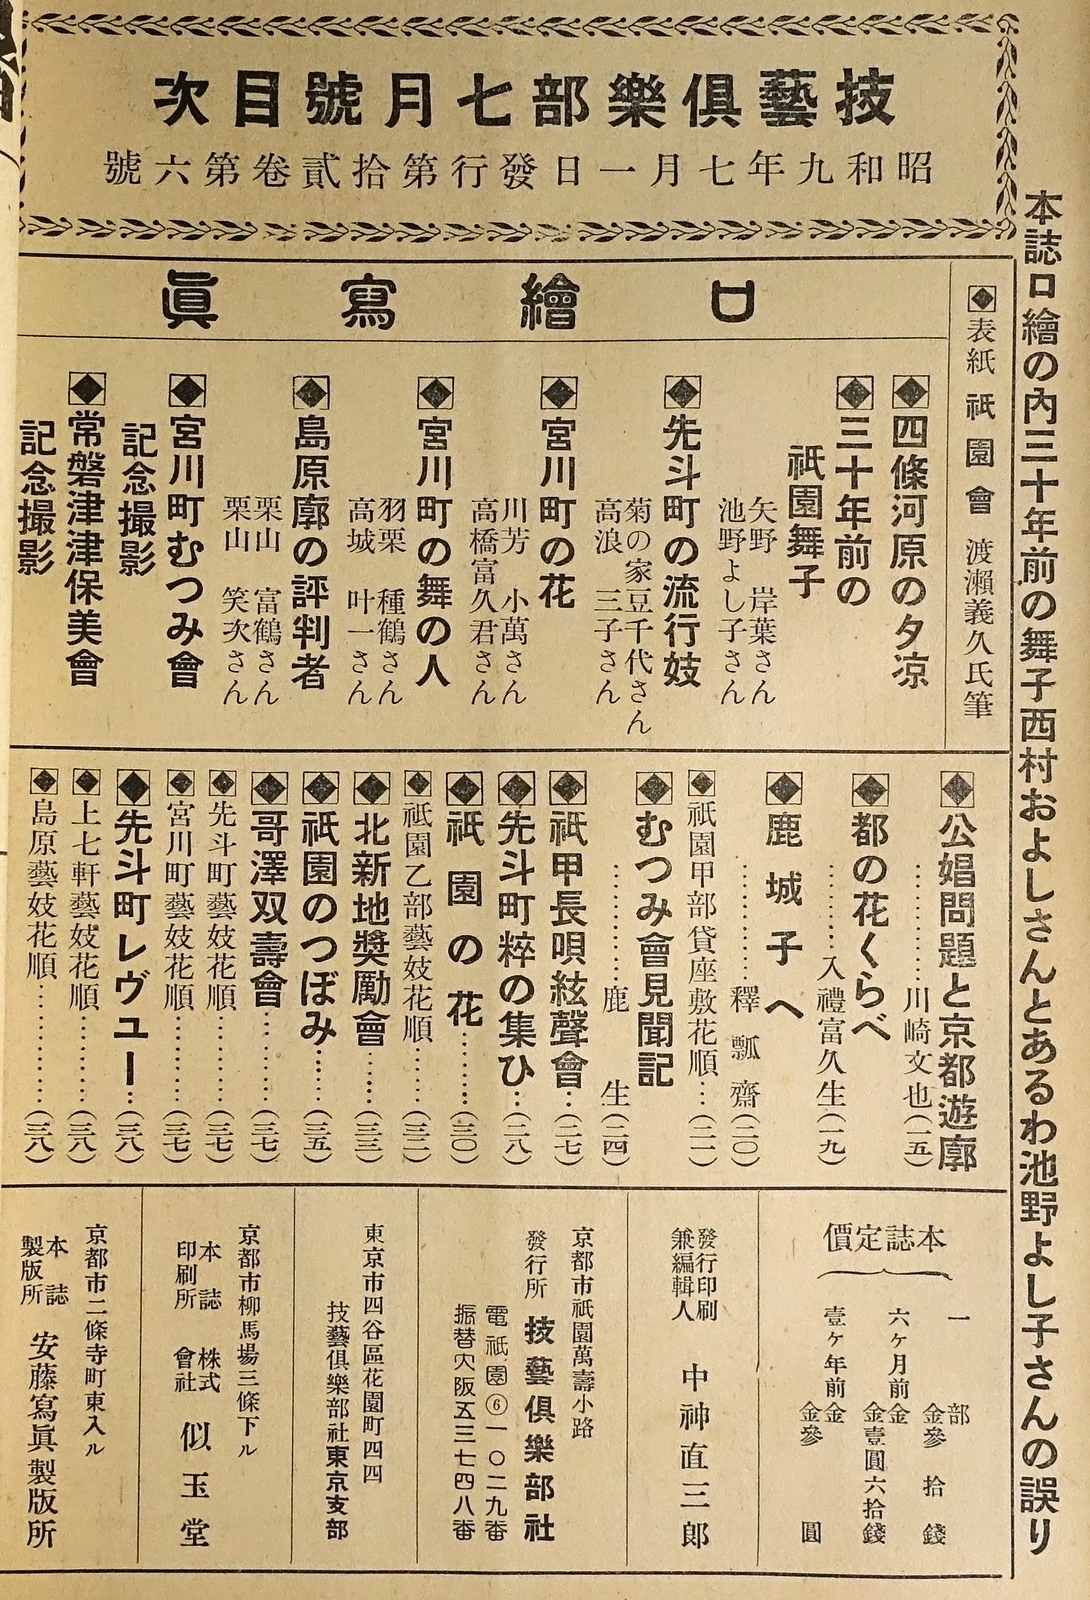 技藝俱樂部七月號目次
昭和九年七月一日發行第拾貳卷第六號
本誌口繪の內三十年前の舞子西村およしさんとあるわ池野よし子さんの誤り
表紙 祇園會 渡瀨義久氏筆
口繪寫眞
四條河原の夕涼
三十年前の
祇園舞子
矢野 岸葉さん
池野よし子さん
先斗町の流行妓
菊の家豆千代さん
高浪 三子さん
宮川町の花
川芳 小萬さん
高橋富久君さん
宮川町の舞の人
羽栗 種鶴さん
高城 叶一さん
島原廓の評判者
栗山 富鶴さん
栗山 笑次さん
宮川町むつみ會
記念撮影
常磐津津保美會
記念撮影
公娼問題と京都遊廓
…………川崎文也(一五)
都の花くらべ
…………入禮富久生(一九)
鹿城子へ
…………釋瓢齋(二〇)
祇園甲部貸座敷花順…(二一)
むつみ會見聞記
…………鹿生(二四)
祇甲長唄絃聲會…(二七)
先斗町粹の集ひ…(二八)
祇園の花………(三〇)
祇園乙部藝妓花順………(三二)
北新地奬勵會……(三三)
祇園のつぼみ……(三五)
哥澤双壽會………(三七)
先斗町藝妓花順…………(三七)
宮川町藝妓花順…………(三七)
先斗町レヴュー…(三八)
上七軒藝妓花順…………(三八)
島原藝妓花順……………(三八)
本誌定價
一部 金參拾錢
六ヶ月前金 金壹圓六拾錢
壹ヶ年前金 金參圓
發行印刷
兼編輯人
中神直三郎
京都市祇園萬壽小路
發行所 技藝俱樂部社
電祇園⑥一〇二九番
振替大阪五三七四八番
東京市四谷區花園町四四
技藝俱樂部社東京支部
京都市柳馬場三條下ル
本誌印刷所 株式會社 似玉堂
京都市二條寺町東入ル
本誌製版所 安藤寫眞製版所